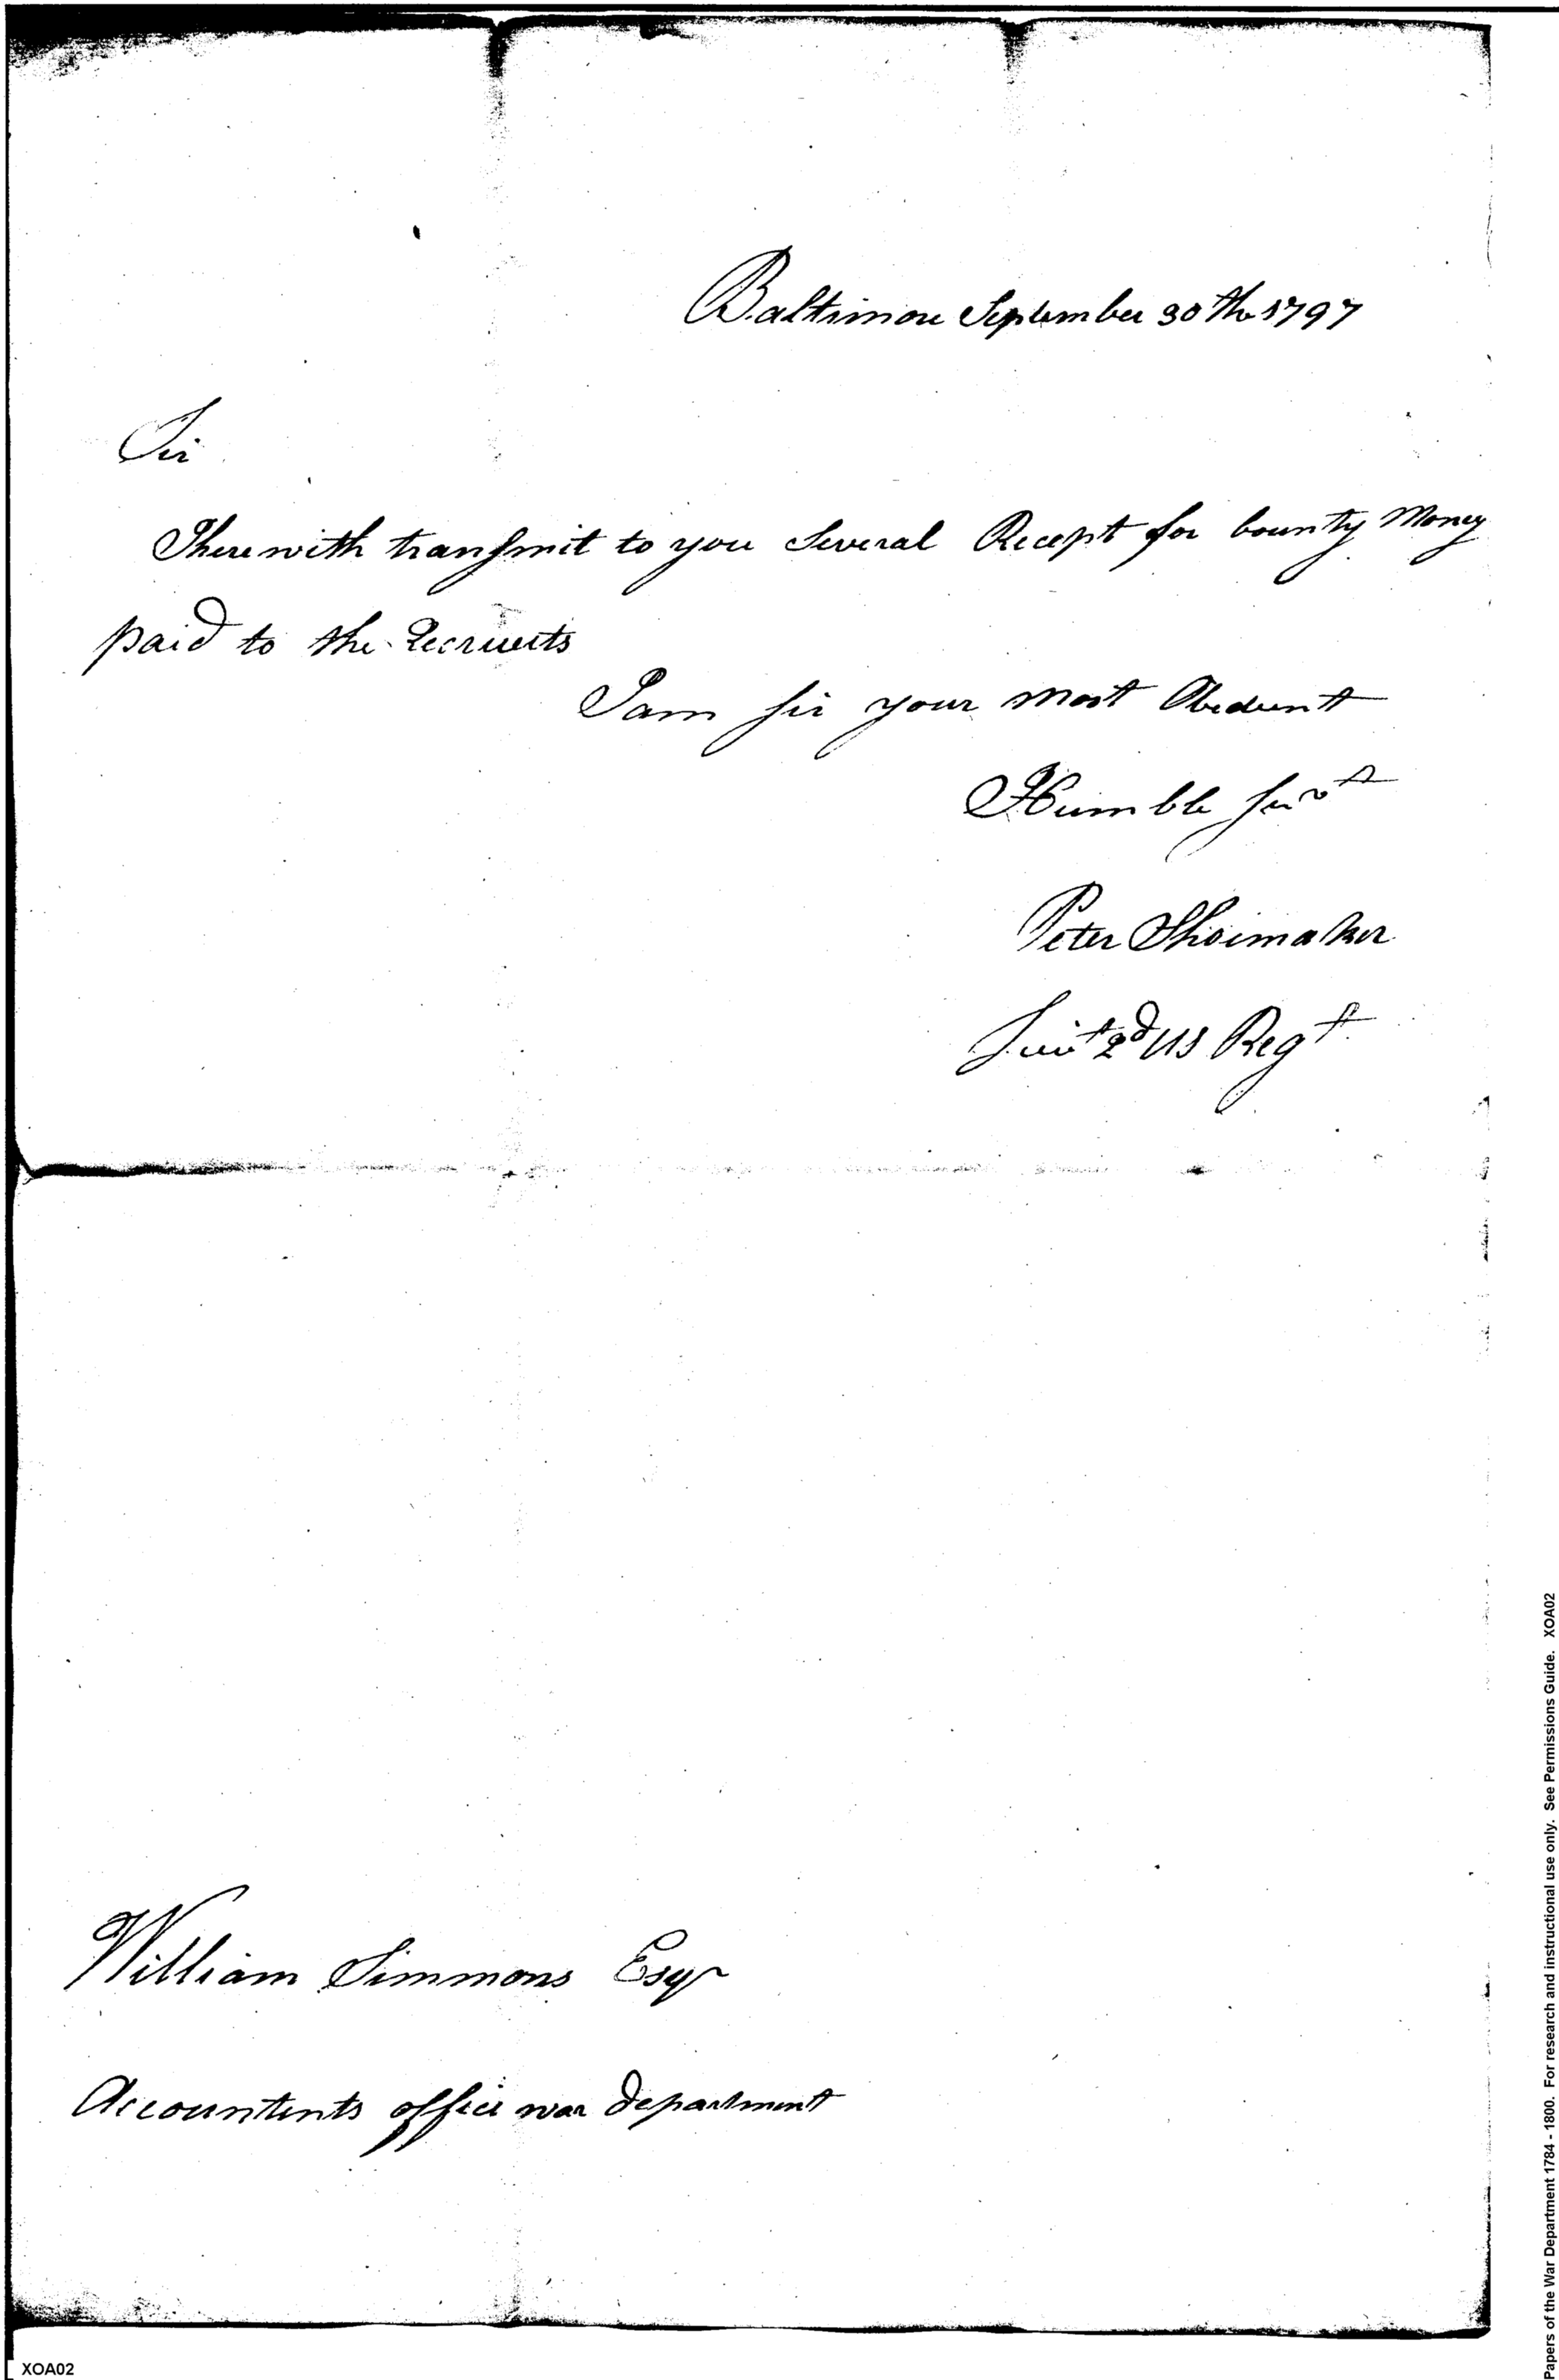 Baltimore September 30th 1797
Sir
I herewith transmit to you Several Recept for bounty Money
paid to the Recruets
I am sir your most Obedient
Humble servt
Peter Shoimaker
Luit 2d US Regt
William Simmons Esqr
Accountents office war department
XOA02
Papers of the War Department 1784 - 1800. For research and instructional use only. See Permissions Guide. XOA02